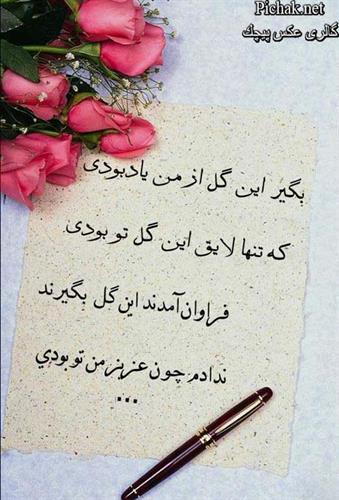 Pichak.net
گالری عکس پیچک
بگیر این گل از من یادبودی
که تنها لایق این گل تو بودی
فراوان آمدند این گل بگیرند
ندادم چون عزیز من تو بودي
...